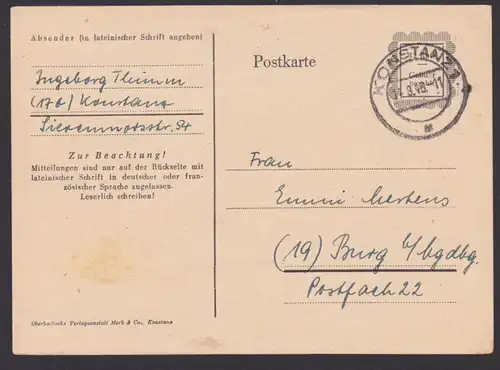 Absender (in lateinischer Schrift angeben)
Ingeborg Thimm
(17b) Konstanz
Zur Beachtung!
Mitteilungen sind nur auf der Rückseite mit
lateinischer Schrift in deutscher oder fran-
zösischer Sprache zugelassen.
Leserlich schreiben!
Oberbadische Verlagsanstalt Merk & Co., Konstanz
Postkarte
KONSTANZ
Frau
Emmi Mertens
(19) Burg b/Mgdbg.
Postfach 22